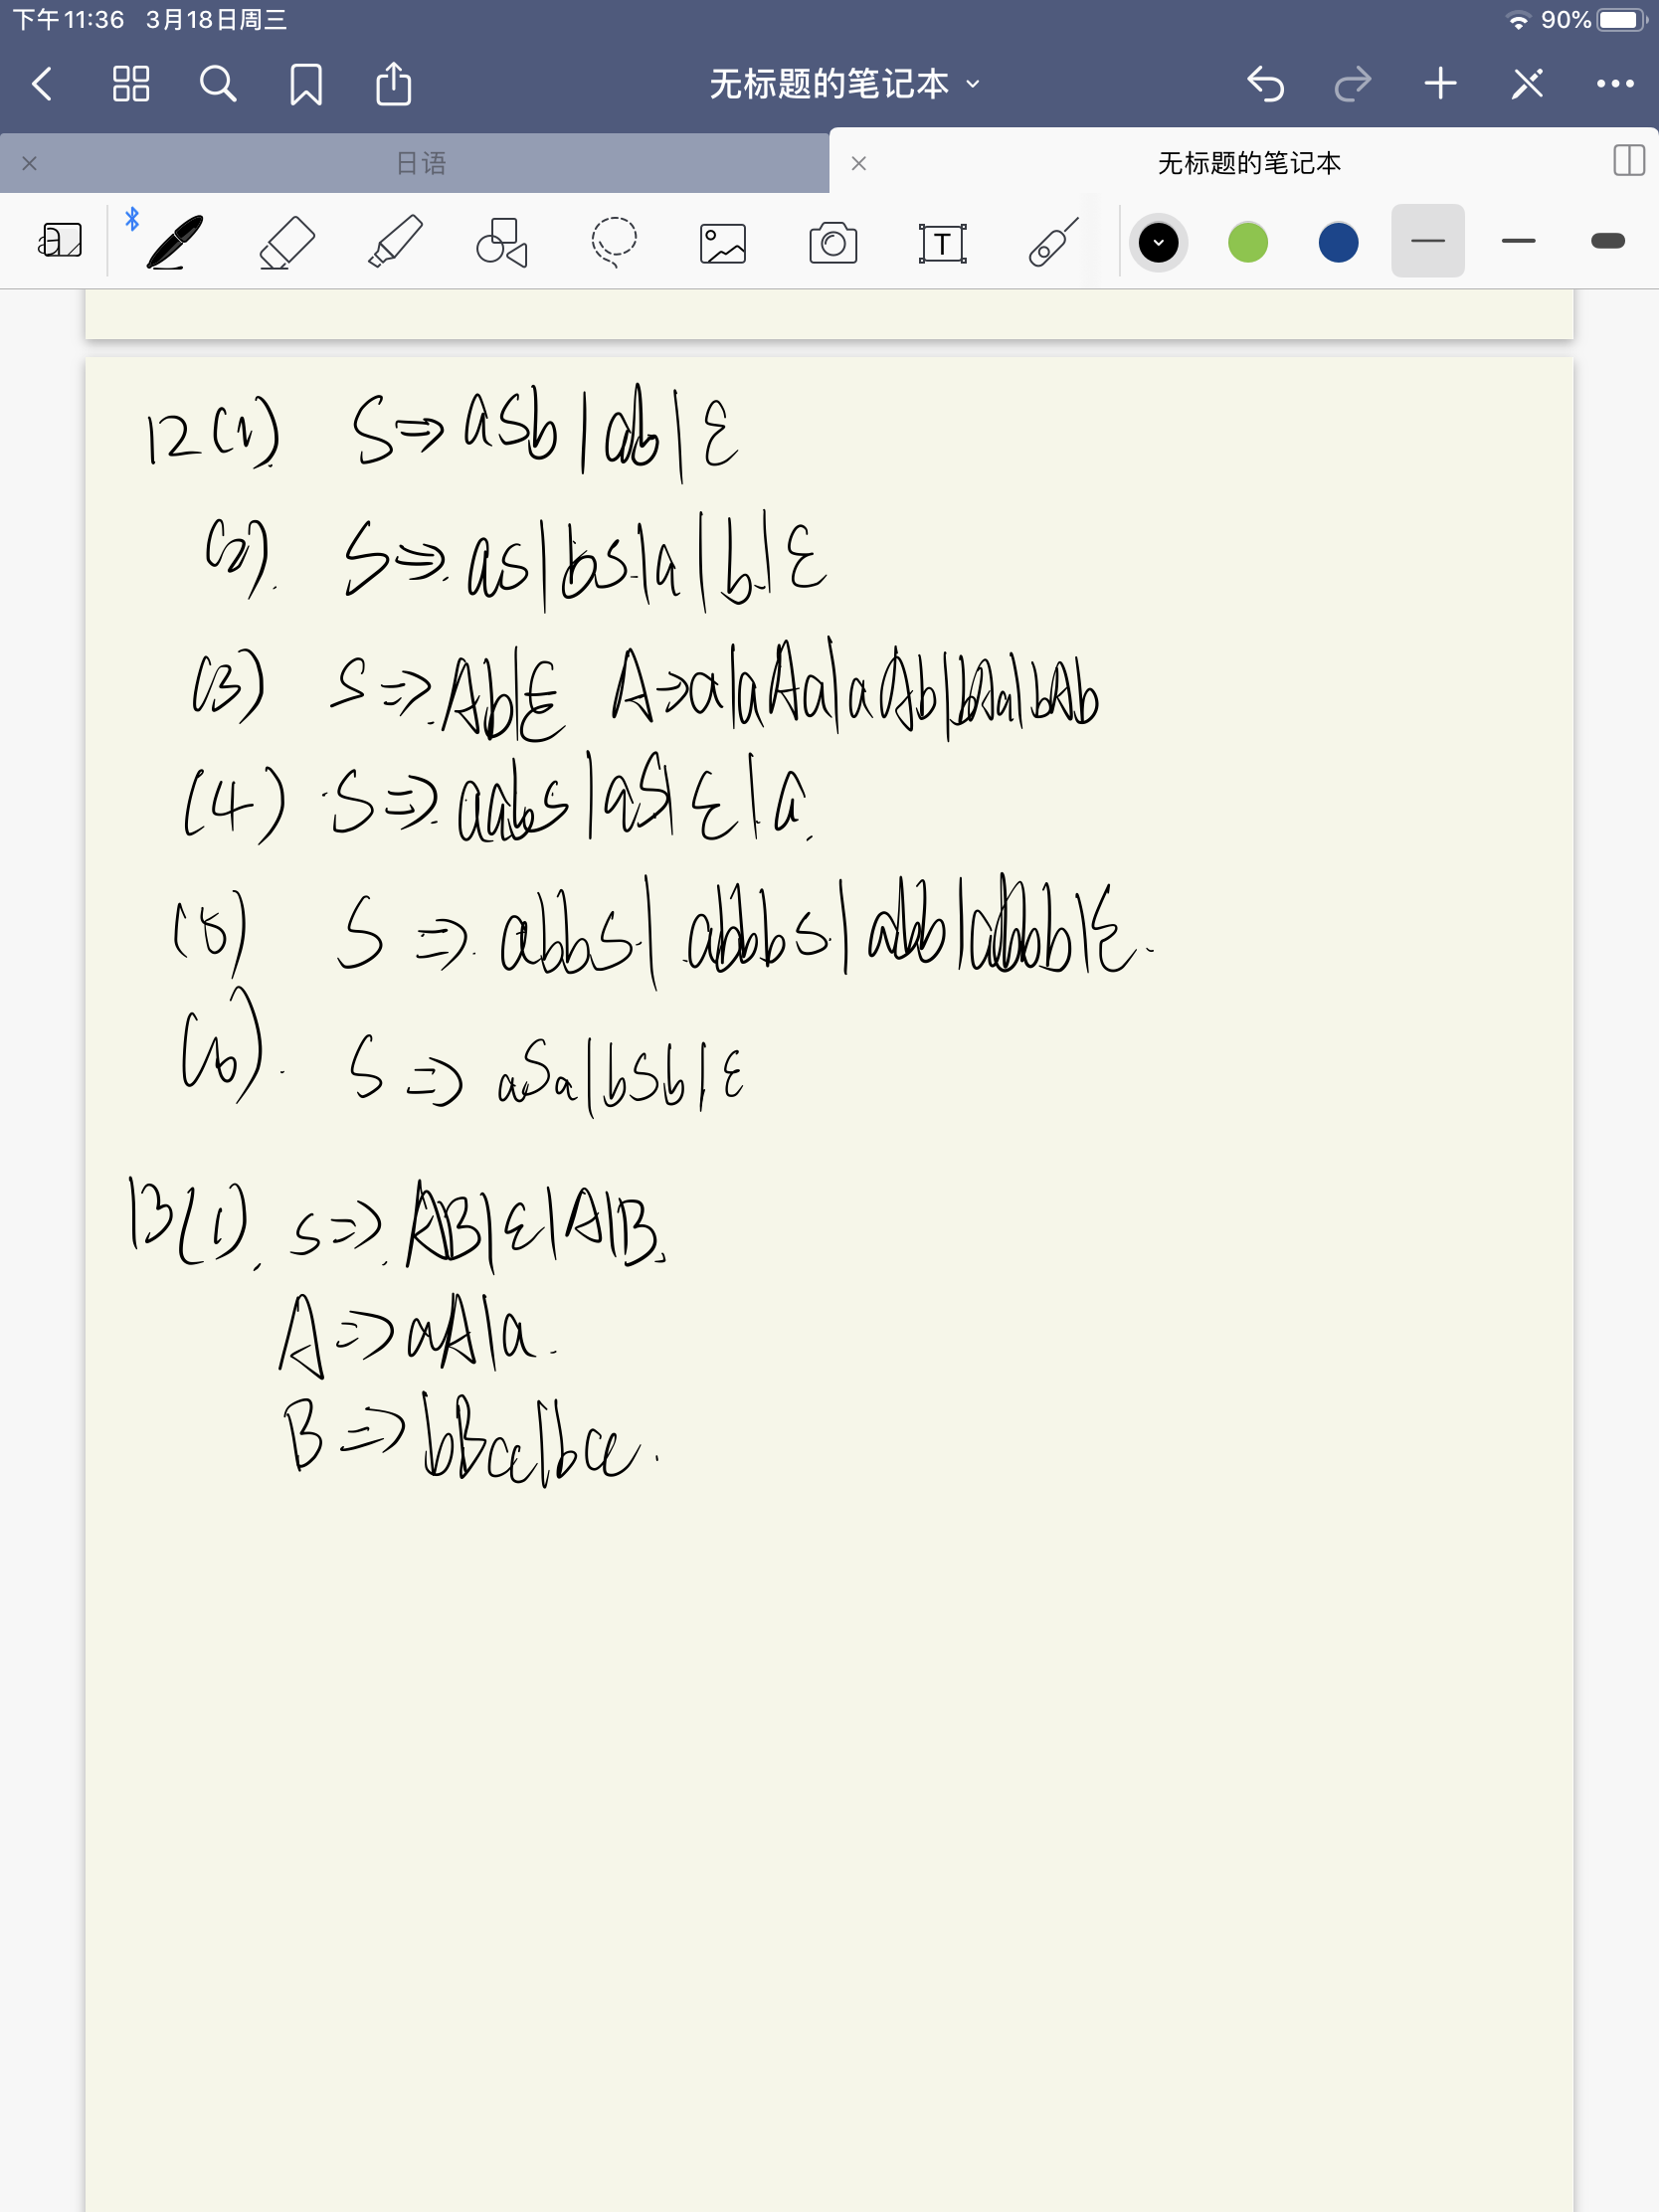 下午11:36 3月18日周三 90%
无标题的笔记本
日语 无标题的笔记本
12(1). S⇒aSb|ab|ε
(2). S⇒.as|bs.|a|b.|ε
(3) S⇒.Ab|ε A⇒a|aAa|aAb|bAa|bAb
(4) S⇒.aabs|aS|ε|a.
(5) S⇒.abbs.|abbbs.|abb|abbb|ε.
(6). S⇒aSa|bSb|ε
13(1). S⇒.AB|ε|A|B.
A⇒aA|a.
B⇒bBcc|bcc.